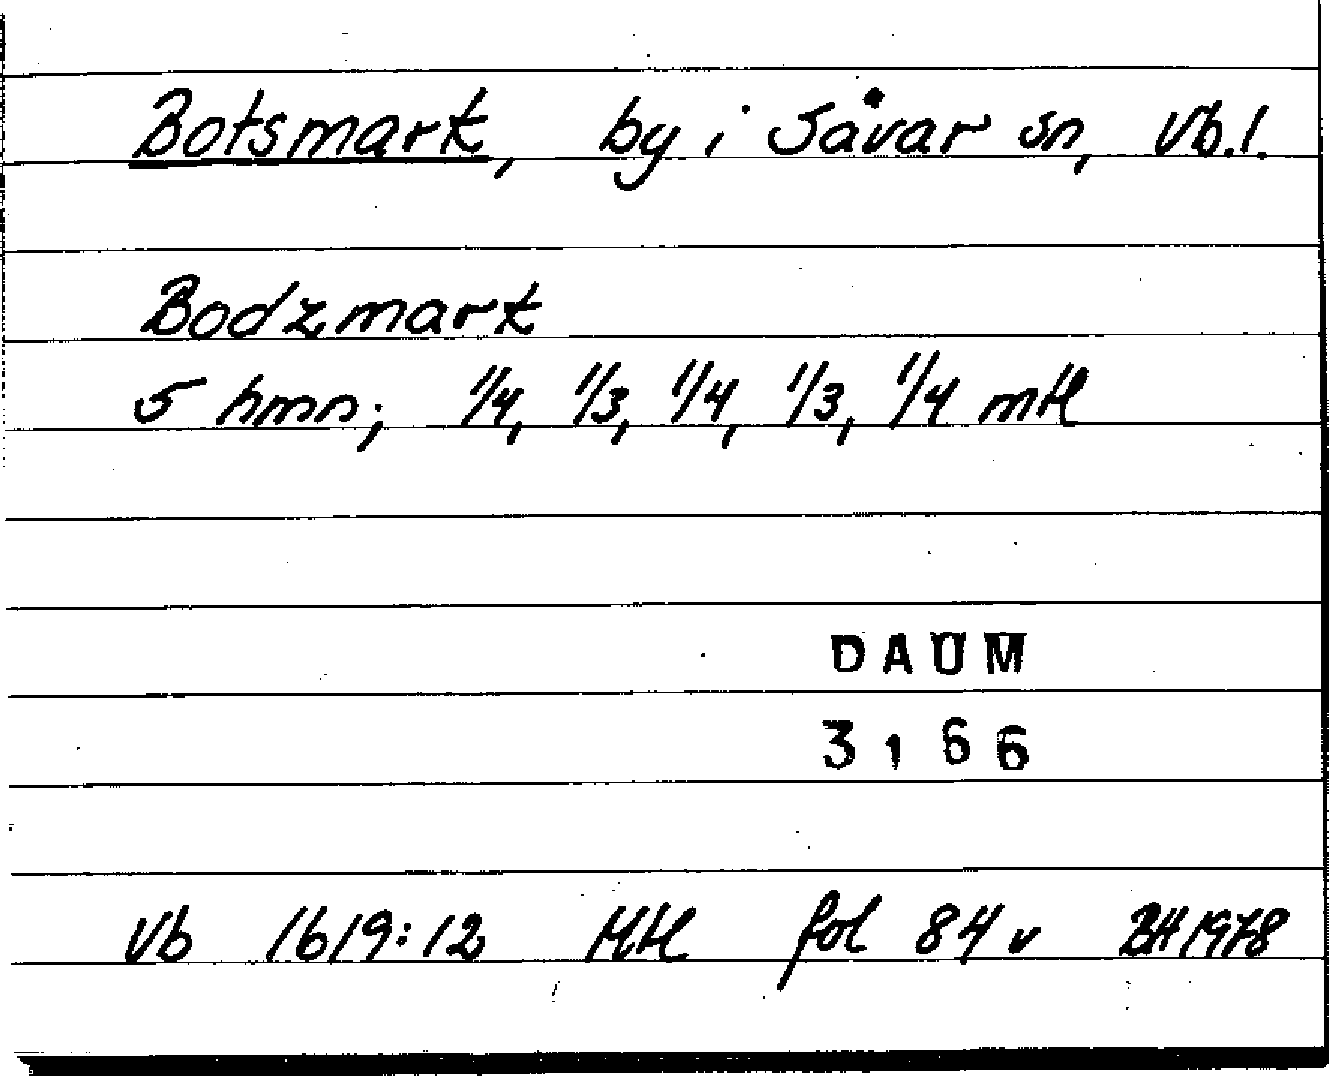 Botsmark, by i Sävar sn, Vb.l.
Bodzmark
5 hmn; 1/4, 1/3, 1/4, 1/3, 1/4 mtl
DAUM
3166
Vb 1619:12 Mtl fol 84 v BH 1978